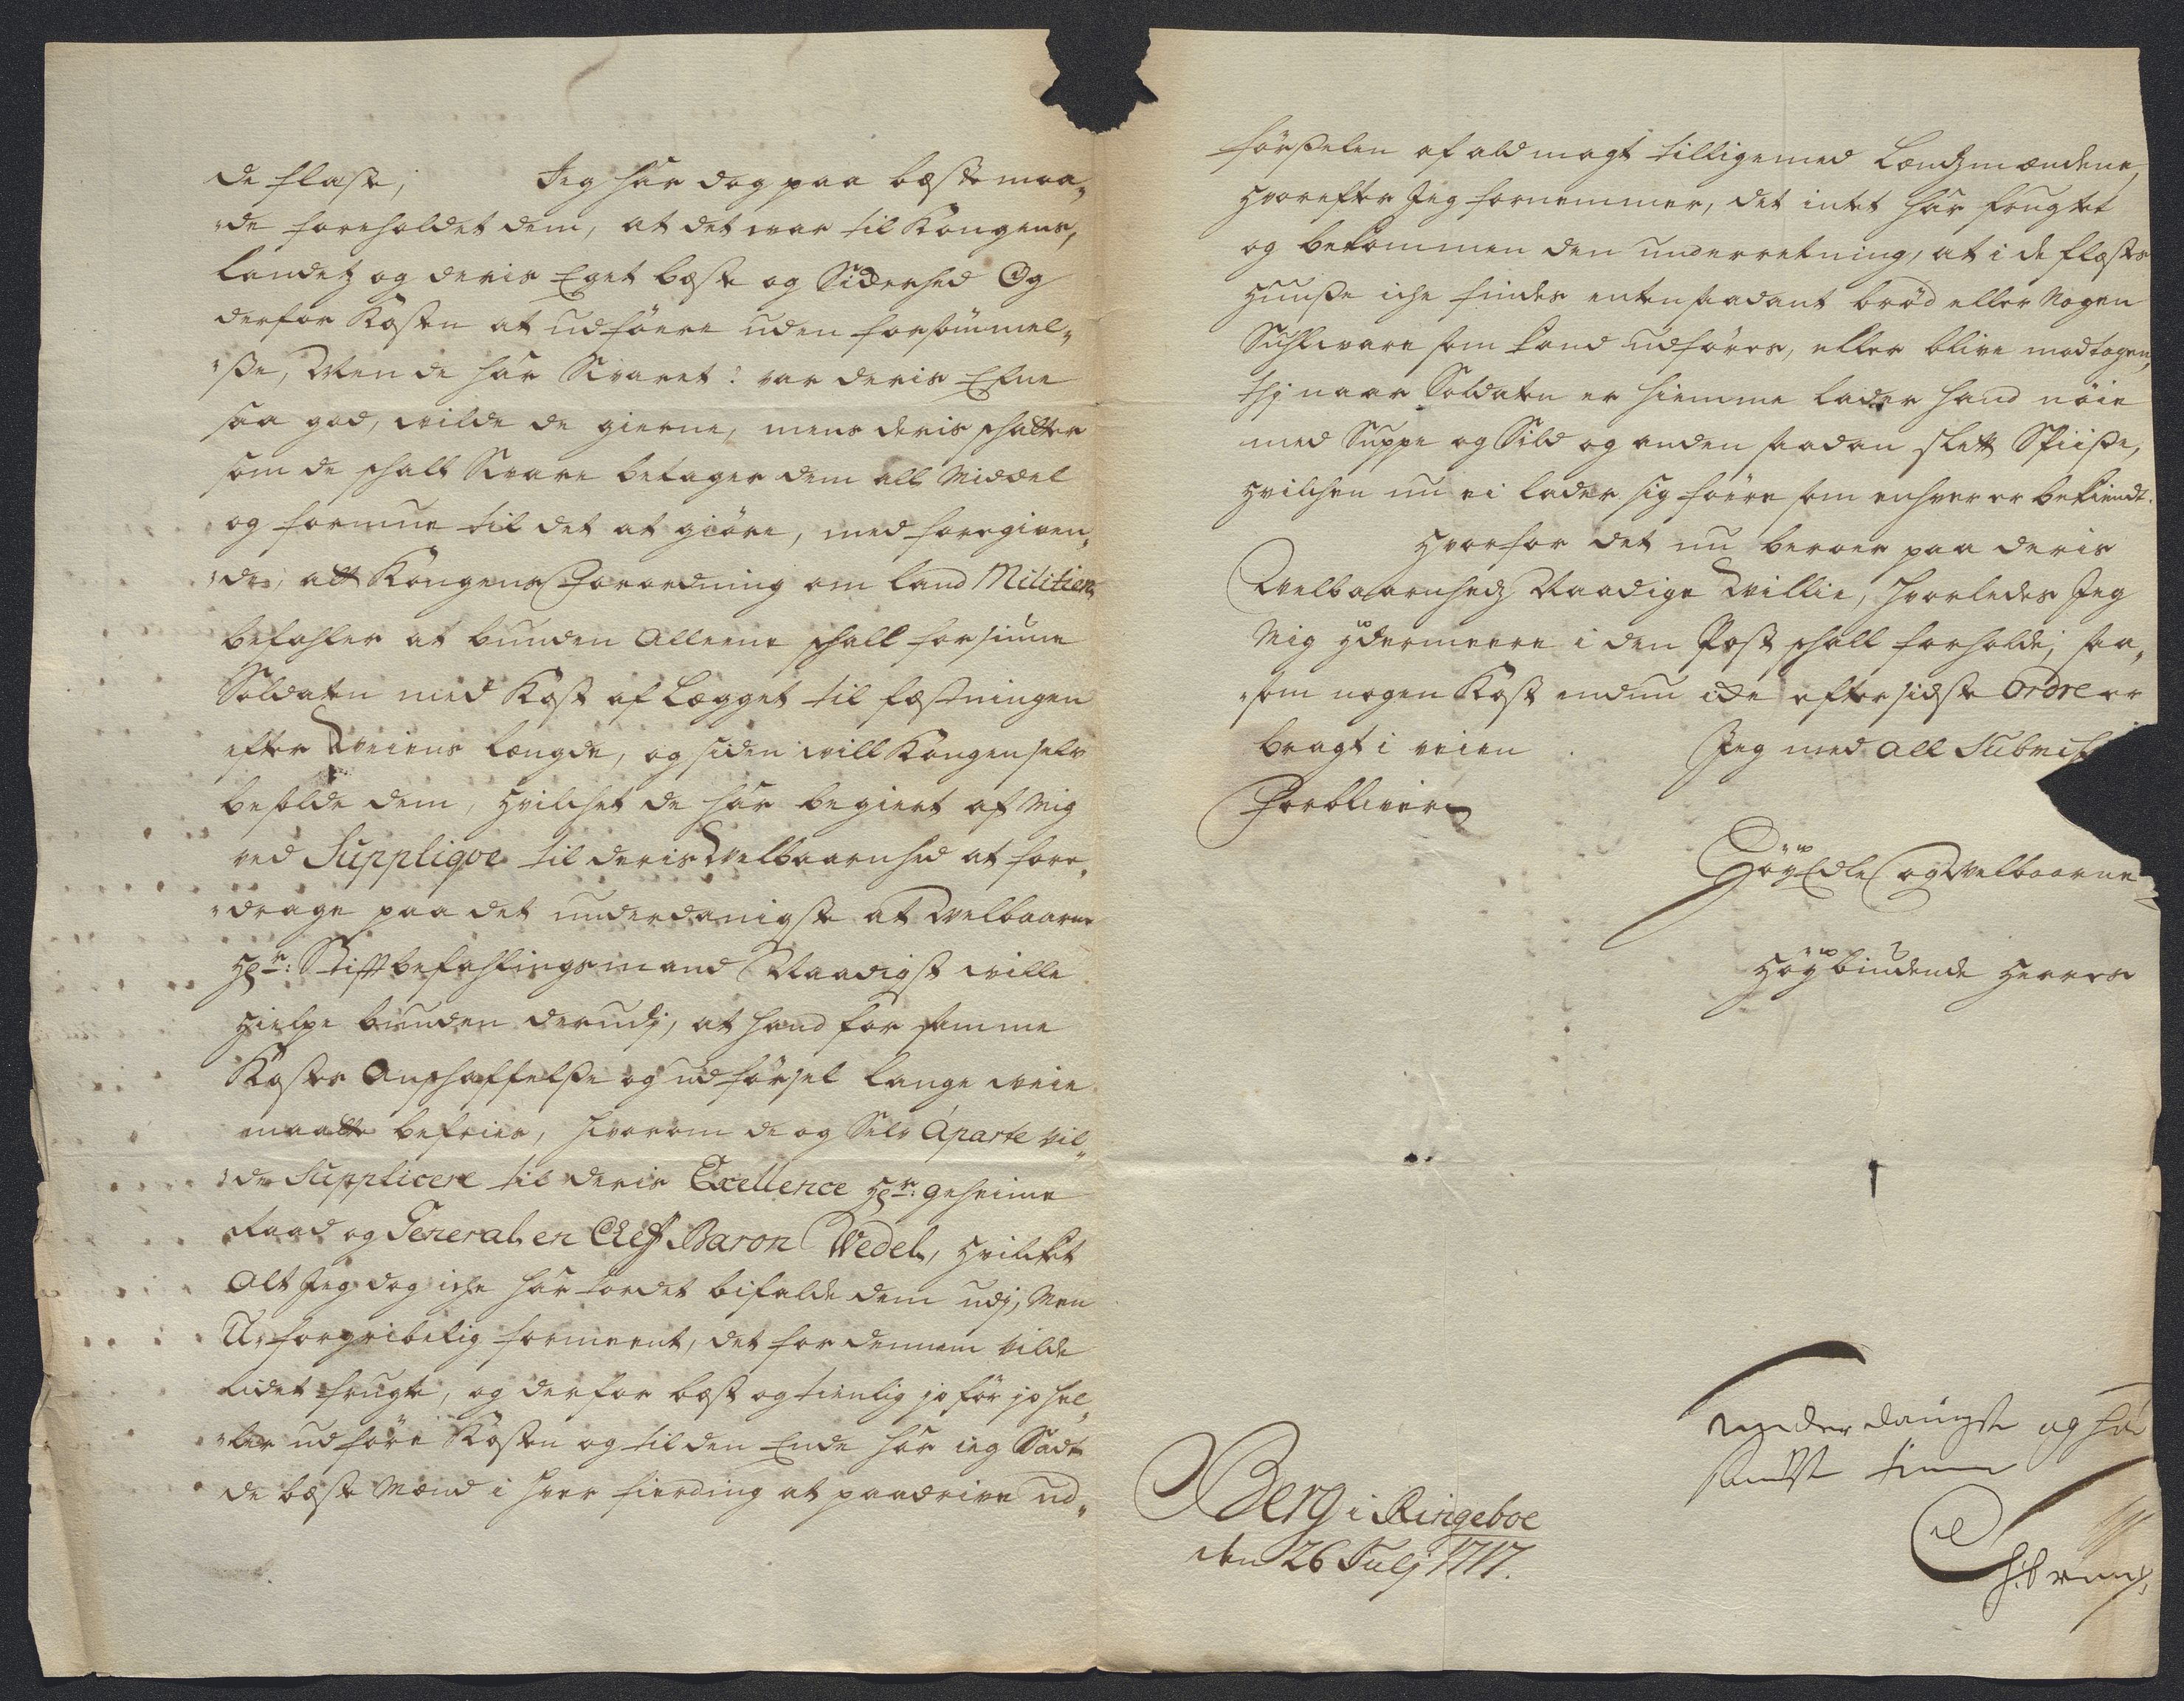 de fleste; Jeg har dog paa bæste maa-
-de foreholdet dem, at det var til Kongens,
landetz og deris Eget bæste og Sickerhed Og
derfor Kosten at udföere uden forsömmel-
-ße, Men de har Svaret: var deris Efne
saa god, wilde de gierne, mens deris schatter
som de schall Svare betager dem all Middel
og formue til det at giöre, med foregiven-
-de, att Kongens Forordning om land Militien
befahler at bunden Alleene schall forsiune
Soldaten med Kost af Lægget til fæstningen
efter Weiens længde, og siden will Kongen selv
beholde dem, hvilchet de har begiert af Mig
ved Suppliqve til deris Welbaarnhed at fore-
-drage paa det underdanigste at Welbaarne
Hr: Stiftbefahlingsmand Naadigst wille
hielpe bunden derudj, at hand for samme
Kostes Anschaffelße og udförsel lange weie
maatte befries, hvorom de og Selv Aparte vil-
-de Supplicere til deris Excellence Hr: geheime
Raad og General en Cheff Baron Wedel, hvilcket
Alt Jeg dog iche har tordet bifalde dem udj, Men
U-forgribelig formeent, det for dennem vilde
lidet frugte, og derfor bæst og tienlig jo för jo hel-
-ler udföre Kosten og til den Ende har ieg Sadt
de bæste Mænd i hver fierding at paadrive ud-
förßelen af ald magt tilligemed Lændzmændene,
hvorefter Jeg fornemmer, det intet har frugtet
og bekommen den underretning, at i de flæste
Huuße iche findes enten saadant bröd eller Nogen
Suhlvare som kand udföres, eller blive modtagen,
thj naar Soldaten er hiemme lader hand nöie
med Suppe og Sild og anden saadan slett Spiiße,
hvilchen nu ei lader sig föere som enhver er bekiendt.
Hvorfor det nu beroer paa deris
Welbaarnhedz Naadige Willie, hvorledes Jeg
Mig ydermeere i den Post schall forholde, saa-
-som nogen Kost endnu icke efter sidste Ordre er
bragt i veien. Jeg med all Submis
Forbliver
HöyEdle og Welbaarne
Höybiudende Herres
underdanigste og
tiener
Berg i Ringeboe
den 26 Julj 1717.